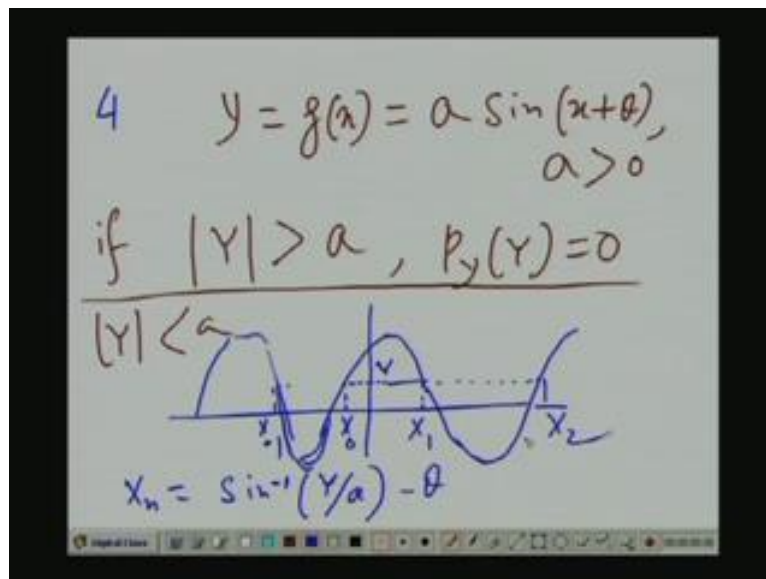 4 y = g(x) = a sin(x+θ),
a > 0
if |Y| > a, Py(Y) = 0
|Y| < a
Y
X-1 X0 X1 X2
Xn = sin⁻¹(Y/a) - θ